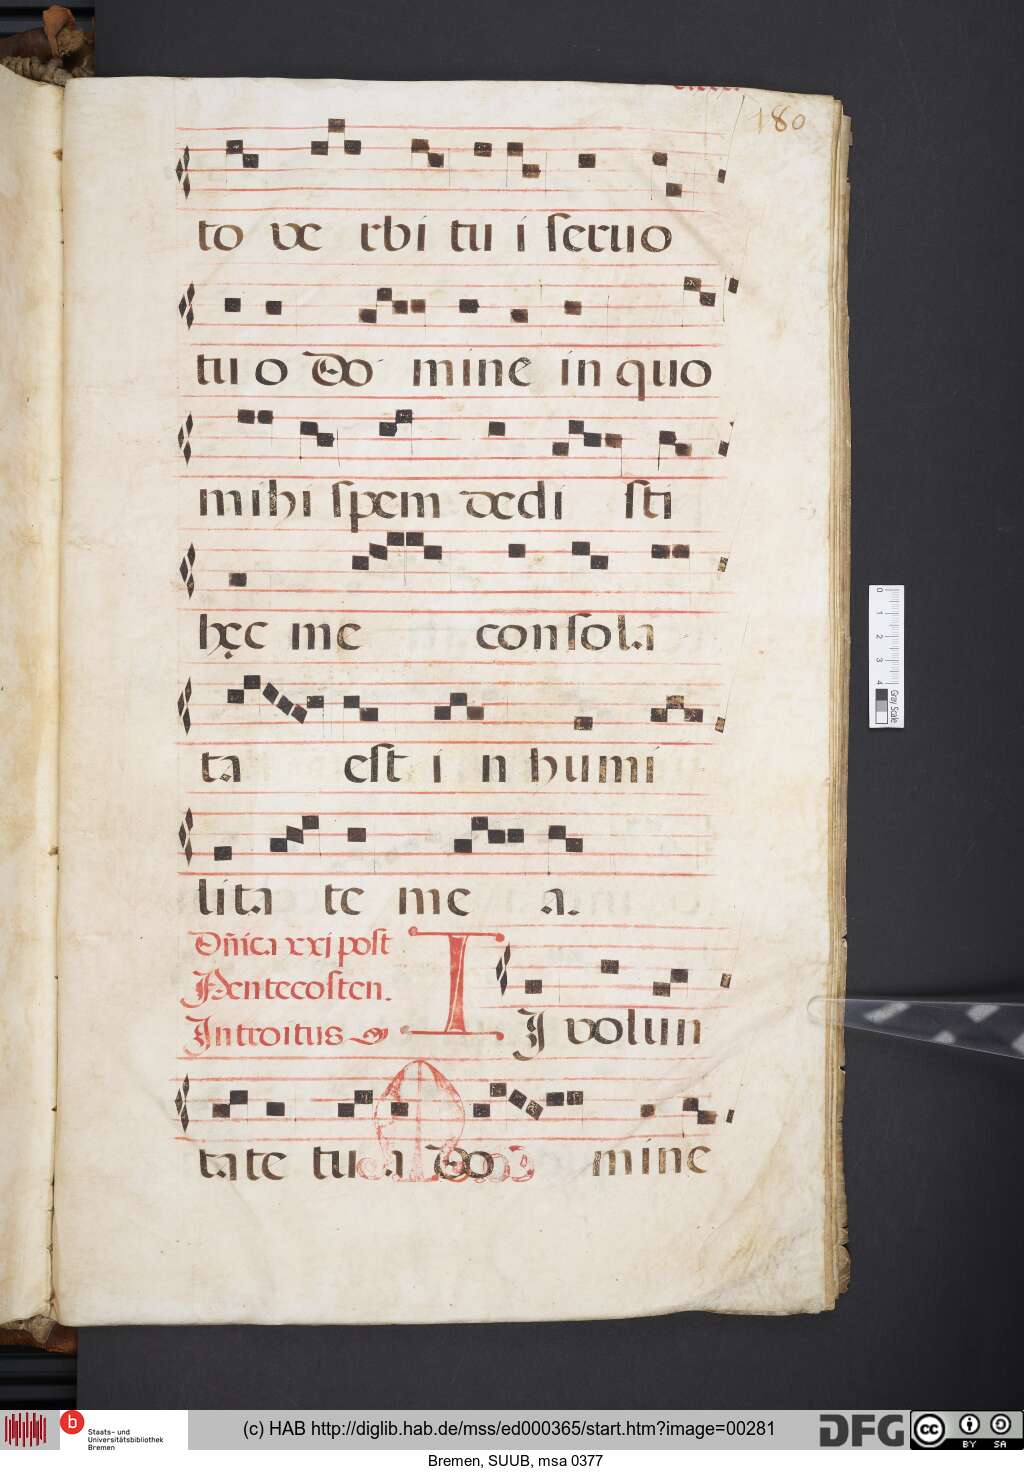 180
to ve rbi tu i seruo
tu o do mine in quo
mihi spem dedi sti
hęc me consola
ta est i n humi
lita te me a.
Dñica xxj post
Pentecosten.
Introitus
I
J volun
tate tu a do mine
0 1 2 3 4
Gray Scale
b
Staats- und
Universitätsbibliothek
Bremen
(c) HAB http://diglib.hab.de/mss/ed000365/start.htm?image=00281
DFG
cc BY SA
Bremen, SUUB, msa 0377